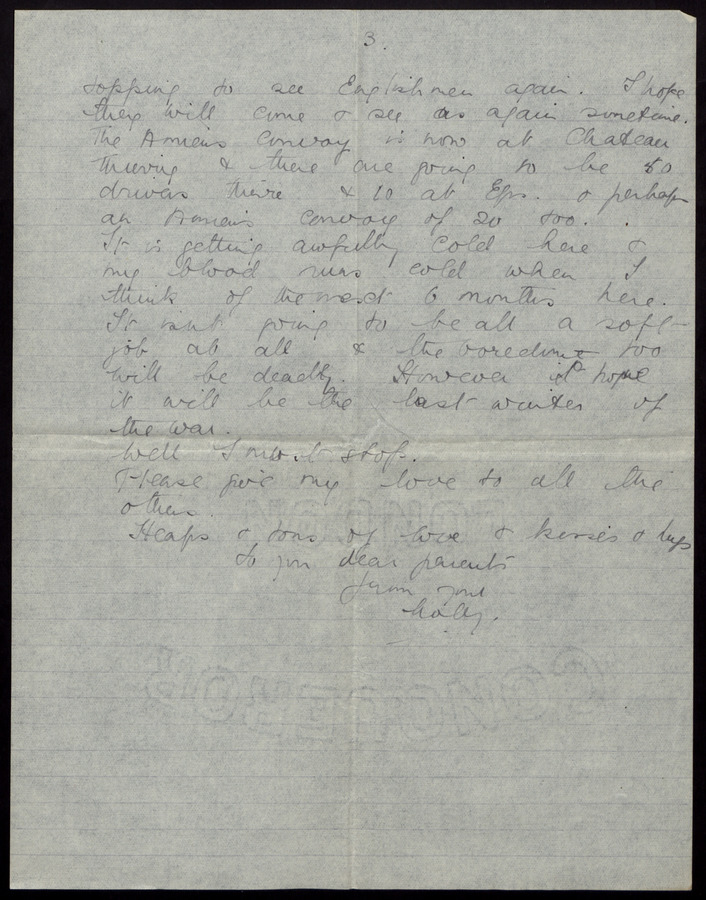 3.
topping to see Englishmen again. I hope
they will come & see us again sometime.
The Amiens Convoy is now at Chateau
Thierry & there are going to be 50
drivers there & 10 at Eps. & perhaps
an Amiens convoy of 20 too.
It is getting awfully cold here &
my blood runs cold when I
think of the next 6 months here.
It isnt going to be all a soft
job at all & the boredome too
will be deadly. However I hope
it will be the last winter of
the war.
Well I must stop.
Please give my love to all the
others.
Heaps & tons of love & kisses & hugs
to you dear parents
from your
Molly.